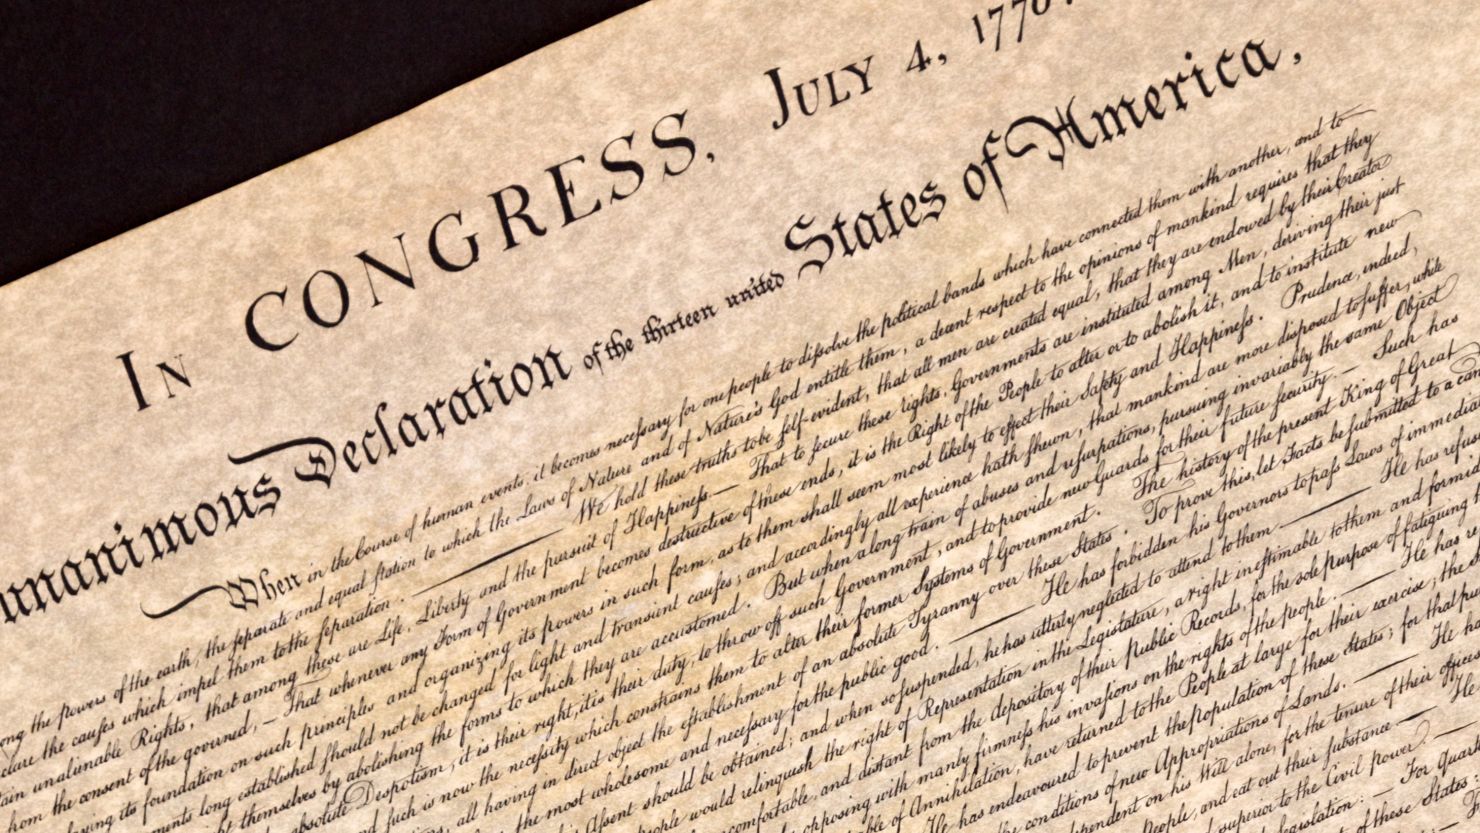 IN CONGRESS, JULY 4, 1776.
unanimous Declaration of the thirteen united States of America,
When in the Course of human events, it becomes necessary for one people to dissolve the political bands which have connected them with another, and to
ong the powers of the earth, the separate and equal station to which the Laws of Nature and of Nature's God entitle them, a decent respect to the opinions of mankind requires that they
clare the causes which impel them to the separation. — We hold these truths to be self-evident, that all men are created equal, that they are endowed by their Creator
tain unalienable Rights, that among these are Life, Liberty and the pursuit of Happiness.— That to secure these rights, Governments are instituted among Men, deriving their just
from the consent of the governed, — That whenever any Form of Government becomes destructive of these ends, it is the Right of the People to alter or to abolish it, and to institute new
laying its foundation on such principles and organizing its powers in such form, as to them shall seem most likely to effect their Safety and Happiness. Prudence, indeed,
ments long established should not be changed for light and transient causes; and accordingly all experience hath shewn, that mankind are more disposed to suffer, while
t themselves by abolishing the forms to which they are accustomed. But when a long train of abuses and usurpations, pursuing invariably the same Object
absolute Despotism, it is their right, it is their duty, to throw off such Government, and to provide new Guards for their future security.— Such has
d such is now the necessity which constrains them to alter their former Systems of Government. The history of the present King of Great
all having in direct object the establishment of an absolute Tyranny over these States. To prove this, let Facts be submitted to a can
the most wholesome and necessary for the public good. — He has forbidden his Governors to pass Laws of immedia
Assent should be obtained; and when so suspended, he has utterly neglected to attend to them. — He has refus
eople would relinquish the right of Representation in the Legislature, a right inestimable to them and formid
comfortable, and distant from the depository of their Public Records, for the sole purpose of fatiguing
opposing with manly firmness his invasions on the rights of the people. — He has re
able of Annihilation, have returned to the People at large for their exercise; the S
He has endeavoured to prevent the population of these States; for that pur
the conditions of new Appropriations of Lands. — He ha
dependent on his Will alone, for the tenure of their offices
People, and eat out their substance — He
superior to the Civil power. —
egislation: — For Quart
of these States